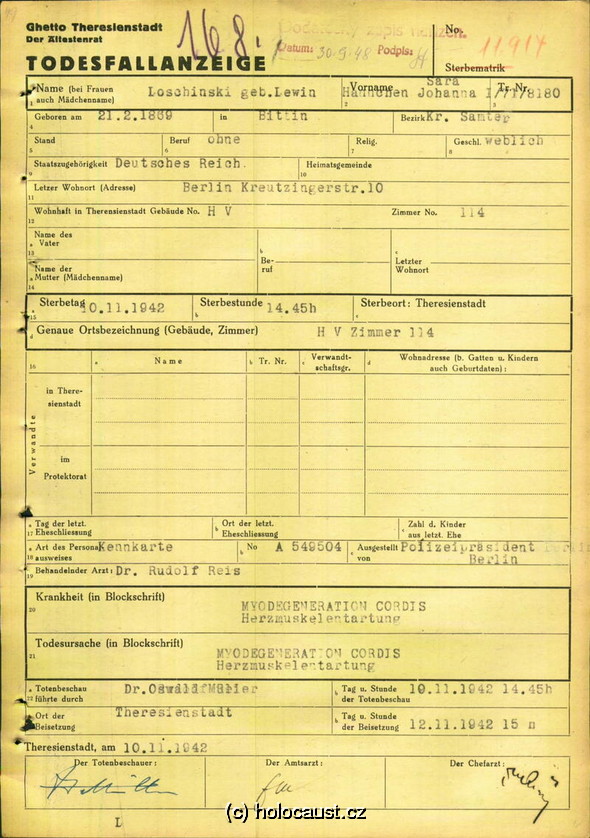 Ghetto Theresienstadt
Der Ältestenrat
TODESFALLANZEIGE
168.
Dodatečný zápis
Datum: 30-9-48 Podpis:
No. 11.917
Sterbematrik
1 Name (bei Frauen auch Mädchenname) Loschinski geb.Lewin
2 Vorname Sara Hannchen Johanna
3 Tr. Nr. I/71/8180
4 Geboren am 21.2.1869 in Bittin Bezirk Kr. Samter
5 Stand
6 Beruf ohne
7 Relig.
8 Geschl. weblich
9 Staatszugehörigkeit Deutsches Reich.
10 Heimatsgemeinde
11 Letzer Wohnort (Adresse) Berlin Kreutzingerstr.10
12 Wohnhaft in Theresienstadt Gebäude No. H V Zimmer No. 114
13 a Name des Vater
b Beruf
c Letzter Wohnort
14 a Name der Mutter (Mädchenname)
15 a Sterbetag 10.11.1942 b Sterbestunde 14.45h c Sterbeort: Theresienstadt
d Genaue Ortsbezeichnung (Gebäude, Zimmer) H V Zimmer 114
16 a Name b Tr. Nr. c Verwandtschaftsgr. d Wohnadresse (b. Gatten u. Kindern auch Geburtdaten):
Verwandte
in Theresienstadt
im Protektorat
17 a Tag der letzt. Eheschliessung b Ort der letzt. Eheschliessung c Zahl d. Kinder aus letzt. Ehe
18 a Art des Personalausweises Kennkarte b No A 549504 c Ausgestellt von Polizeipräsident Berlin
Berlin
19 Behandelnder Arzt: Dr. Rudolf Reis
20 Krankheit (in Blockschrift) MYODEGENERATION CORDIS
Herzmuskelentartung
21 Todesursache (in Blockschrift) MYODEGENERATION CORDIS
Herzmuskelentartung
22 a Totenbeschau führte durch Dr. b Tag u. Stunde der Totenbeschau 10.11.1942 14.45h
a Ort der Beisetzung Theresienstadt b Tag u. Stunde der Beisetzung 12.11.1942 15 h
Theresienstadt, am 10.11.1942
Der Totenbeschauer: Der Amtsarzt: Der Chefarzt:
L
(c) holocaust.cz